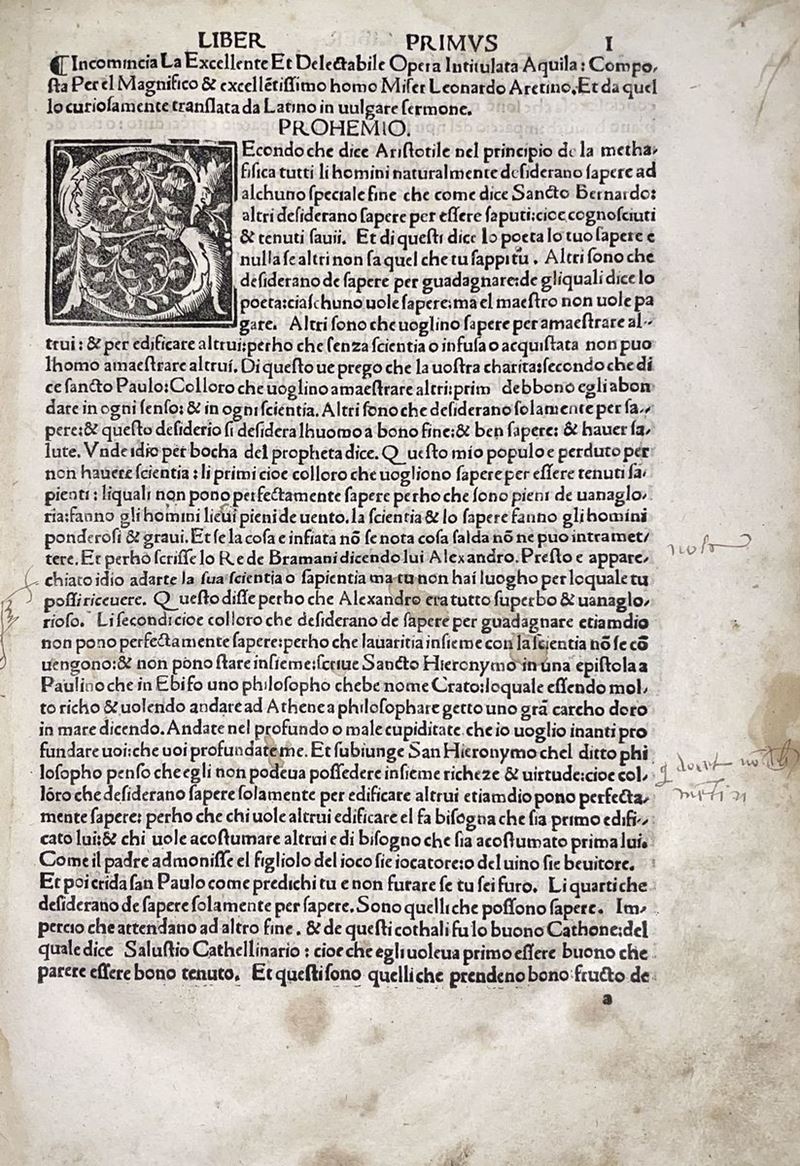 LIBER PRIMVS I
¶Incomincia La Excellente Et Delectabile Opera Intitulata Aquila: Compo,
ſta Per el Magnifico & excellētiſſimo homo Miſer Leonardo Aretino.Et da quel
lo curioſamente tranſlata da Latino in uulgare ſermone.
PROHEMIO.
SEcondo che dice Ariſtotile nel principio de la metha,
fiſica tutti li homini naturalmente deſiderano ſapere ad
alchuno ſpeciale fine che come dice Sancto Bernardo:
altri deſiderano ſapere per eſſere ſaputi:cioe cognoſciuti
& tenuti ſauii. Et di queſti dice lo poeta lo tuo ſapere e
nulla ſe altri non ſa quel che tu ſappitu. Altri ſono che
deſiderano de ſapere per guadagnare:de gliquali dice lo
poeta:ciaſchuno uole ſapere:ma el maeſtro non uole pa
gare. Altri ſono che uoglino ſapere per amaeſtrare al,
trui: & per edificare altrui:perho che ſenza ſcientia o infuſa o acquiſtata non puo
lhomo amaeſtrare altrui. Di queſto ue prego che la uoſtra charita:ſecondo che di
ce ſancto Paulo:Colloro che uoglino amaeſtrare altri:prim debbono egli abon
dare in ogni ſenſo: & in ogni ſcientia. Altri ſono che deſiderano ſolamente per ſa,
pere:& queſto deſiderio ſi deſidera lhuomo a bono fine:& ben ſapere: & hauer ſa,
lute. Vnde idio per bocha del propheta dice. Queſto mio populo e perduto per
non hauere ſcientia: li primi cioe colloro che uogliono ſapere per eſſere tenuti ſa,
pienti: liquali non pono perfectamente ſapere perho che ſono pieni de uanaglo,
ria:fanno gli homini lieui pieni de uento.la ſcientia & lo ſapere fanno gli homini
ponderoſi & graui. Et ſe la coſa e infiata nō ſe nota coſa ſalda nō ne puo intramet,
tere. Et perho ſcriſſe lo Re de Bramani dicendo lui Alexandro. Preſto e appare,
chiato idio adarte la ſua ſcientia o ſapientia ma tu non hai luogho per loquale tu
poſſi riceuere. Queſto diſſe perho che Alexandro era tutto ſuperbo & uanaglo,
rioſo. Li ſecondi cioe colloro che deſiderano de ſapere per guadagnare etiamdio
non pono perfectamente ſapere:perho che lauaritia inſieme con la ſcientia nō ſe cō
uengono:& non pono ſtare inſieme:ſcriue Sancto Hieronymo in una epiſtola a
Paulino che in Ebiſo uno philoſopho chebe nome Crato:loquale eſſendo mol,
to richo & uolendo andare ad Athene a philoſophare getto uno grā carcho doro
in mare dicendo. Andate nel profundo o male cupiditate che io uoglio inanti pro
fundare uoi:che uoi profundate me. Et ſubiunge San Hieronymo chel ditto phi
loſopho penſo che egli non podeua poſſedere inſieme richeze & uirtude:cioe col,
loro che deſiderano ſapere ſolamente per edificare altrui etiamdio pono perfecta,
mente ſapere: perho che chi uole altrui edificare el fa biſogna che ſia primo edifi,
cato lui:& chi uole acoſtumare altrui e di biſogno che ſia acoſtumato prima lui.
Come il padre admoniſſe el figliolo del ioco ſie iocatore:o del uino ſie beuitore.
Et poi crida ſan Paulo come predichi tu e non furare ſe tu ſei furo. Li quarti che
deſiderano de ſapere ſolamente per ſapere. Sono quelli che poſſono ſapere. Im,
percio che attendano ad altro fine. & de queſti cothali fu lo buono Cathone:del
quale dice Saluſtio Cathellinario: cioe che egli uoleua primo eſſere buono che
parere eſſere bono tenuto. Et queſti ſono quelli che prendeno bono fructo de
a